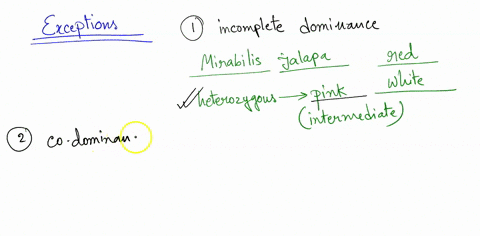 Exceptions
① incomplete dominance
Mirabilis jalapa red
white
heterozygous → pink
(intermediate)
② co-dominan.